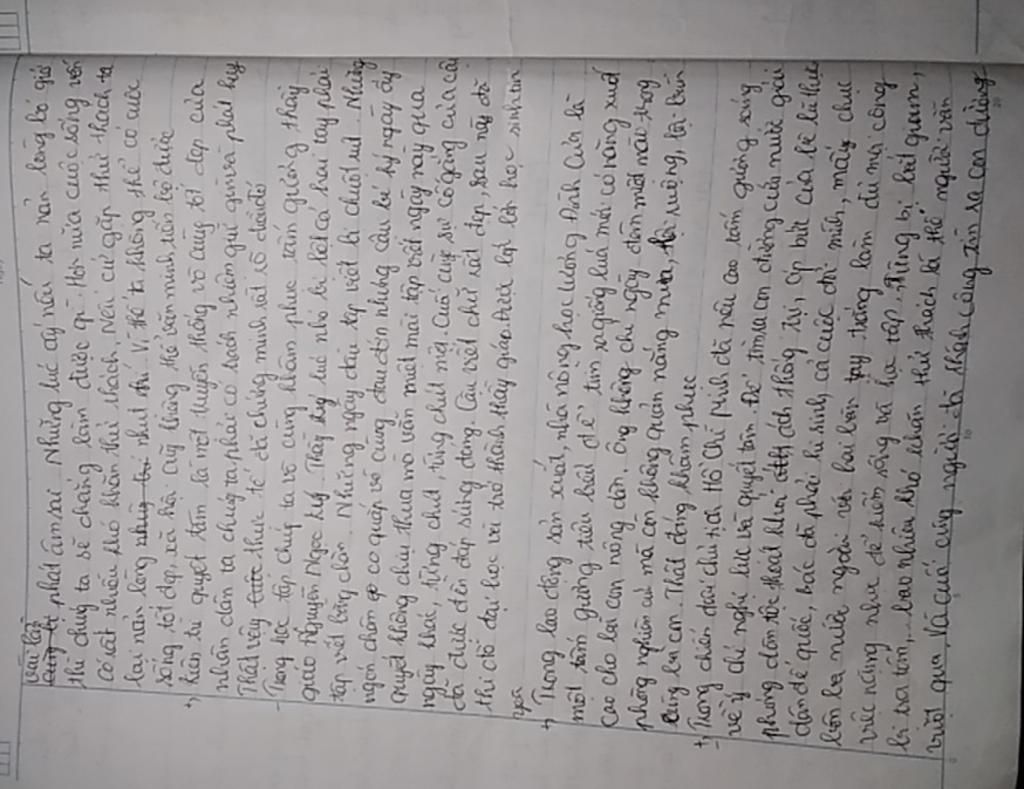 nói lắp
phát âm sai Những lúc ấy nếu ta nản lòng bỏ giở
thì chúng ta sẽ chẳng làm được gì. Hơn nữa cuộc sống vốn
có rất nhiều khó khăn thử thách, Nếu cứ gặp thử thách ta
lại nản lòng như thế. Vì thế ta không thể có cuộc
sống tốt đẹp, xã hội cũng không thể văn minh, tiến bộ được
kiên trì quyết tâm là một truyền thống vô cùng tốt đẹp của
nhân dân ta chúng ta phải có trách nhiệm giữ gìn và phát huy
Thật vậy thực tế đã chứng minh rất rõ điều đó
- Trong học tập chúng ta vô cùng khâm phục tấm gương thầy
giáo Nguyễn Ngọc Ký. Thầy ký lúc nhỏ bị liệt cả hai tay phải
tập viết bằng chân. Những ngày đầu tập viết bị chuột rút. Những
ngón chân co quắp vô cùng đau đớn nhưng cậu bé ký ngày ấy
Quyết không chịu thua mà vẫn miệt mài tập viết ngày này qua
ngày khác, từng chút, từng chút một. Cuối cùng sự cố gắng của cậu
đã được đền đáp xứng đáng. Cậu viết chữ rất đẹp, sau này đỗ
thi cto đại học và trở thành thầy giáo
+ Trong lao động sản xuất, nhà nông học Lương Đình Của là
một tấm gương tiêu biểu để tìm ra giống lúa mới có năng xuất
Cao cho bà con nông dân. Ông không chỉ ngày đêm miệt mài trong
phòng nghiên cứu mà còn không quản nắng mưa, lội ruộng, lội bùn
cùng bà con. Thật đáng khâm phục
- Trong chiến đấu chủ tịch Hồ Chí Minh đã nêu cao tấm gương sáng
về ý chí nghị lực và quyết tâm. Để tìm ra con đường cứu nước giải
phóng dân tộc thoát khỏi ách thống trị, áp bức của bè lũ thực
dân đế quốc, bác đã phải hi sinh, cả cuộc đời mình, mấy chục
bôn ba nước ngoài với hai bàn tay trắng làm đủ mọi công
việc nặng nhọc để kiếm sống và học tập. Từng bị bắt giam,
bị tra tấn,... bao nhiêu khó khăn thử thách là thế người vẫn
vượt qua. Và cuối cùng người đã thành công tìm ra con đường